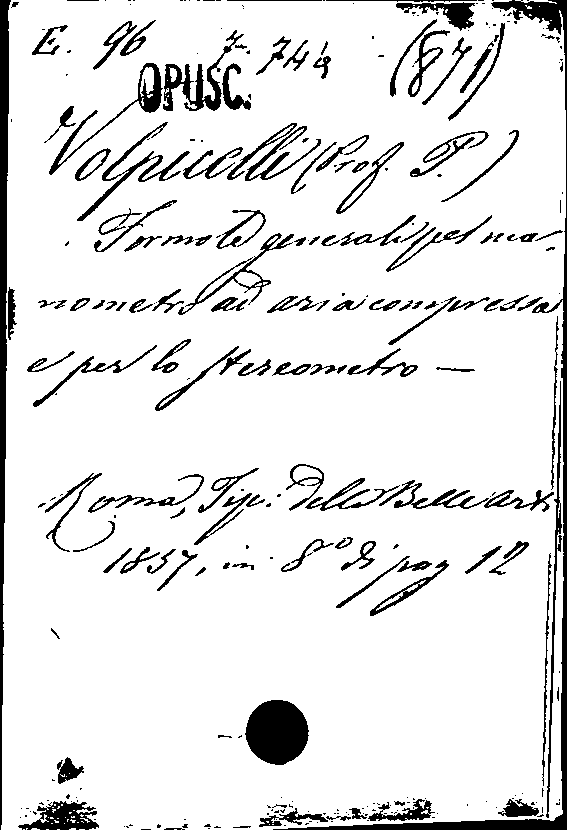 E. 96 7. 744 (871)
OPUSC.
Volpicelli (Prof. P.)
Formole generali pel ma-
nometro ad aria compressa
e per lo stereometro —
Roma, Tip: delle Belle Arti
1857, in 8º di pag 12